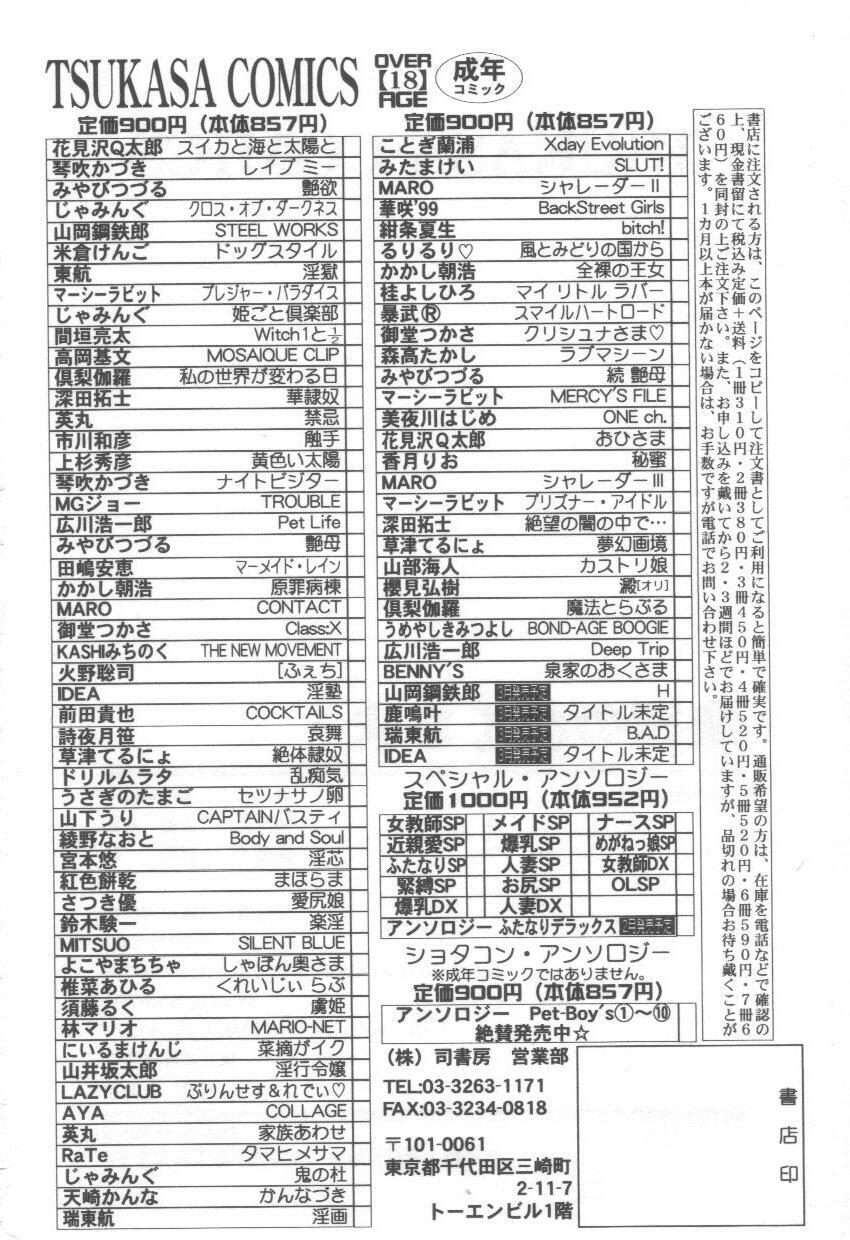 TSUKASA COMICS
OVER
【18】
AGE
成年
コミック
定価900円（本体857円）
花見沢Q太郎 スイカと海と太陽と
琴吹かづき レイプ ミー
みやびつづる 艶欲
じゃみんぐ クロス・オブ・ダークネス
山岡鋼鉄郎 STEEL WORKS
米倉けんご ドッグスタイル
東航 淫獄
マーシーラビット プレジャー・パラダイス
じゃみんぐ 姫ごと倶楽部
間垣亮太 Witch1と½
高岡基文 MOSAIQUE CLIP
倶梨伽羅 私の世界が変わる日
深田拓士 華隷奴
英丸 禁忌
市川和彦 触手
上杉秀彦 黄色い太陽
琴吹かづき ナイトビジター
MGジョー TROUBLE
広川浩一郎 Pet Life
みやびつづる 艶母
田嶋安恵 マーメイド・レイン
かかし朝浩 原罪病棟
MARO CONTACT
御堂つかさ Class:X
KASHIみちのく THE NEW MOVEMENT
火野聡司 [ふぇち]
IDEA 淫塾
前田貴也 COCKTAILS
詩夜月笹 哀舞
草津てるにょ 絶体隷奴
ドリルムラタ 乱痴気
うさぎのたまご セツナサノ卵
山下うり CAPTAINバスティ
綾野なおと Body and Soul
宮本悠 淫芯
紅色餅乾 まほらま
さつき優 愛尻娘
鈴木駿一 楽淫
MITSUO SILENT BLUE
よこやまちちゃ しゃぼん奥さま
椎菜あひる くれいじぃ らぶ
須藤るく 虜姫
林マリオ MARIO-NET
にいるまけんじ 菜摘がイク
山井坂太郎 淫行令嬢
LAZYCLUB ぷりんせす＆れでぃ♡
AYA COLLAGE
英丸 家族あわせ
RaTe タマヒメサマ
じゃみんぐ 鬼の杜
天崎かんな かんなづき
瑞東航 淫画
定価900円（本体857円）
ことぎ蘭浦 Xday Evolution
みたまけい SLUT!
MARO シャレーダーⅡ
華咲'99 BackStreet Girls
紺条夏生 bitch!
るりるり♡ 風とみどりの国から
かかし朝浩 全裸の王女
桂よしひろ マイ リトル ラバー
暴武® スマイルハートロード
御堂つかさ クリシュナさま♡
森高たかし ラブマシーン
みやびつづる 続 艶母
マーシーラビット MERCY'S FILE
美夜川はじめ ONE ch.
花見沢Q太郎 おひさま
香月りお 秘蜜
MARO シャレーダーⅢ
マーシーラビット プリズナー・アイドル
深田拓士 絶望の闇の中で…
草津てるにょ 夢幻画境
山部海人 カストリ娘
櫻見弘樹 澱[オリ]
倶梨伽羅 魔法とらぶる
うめやしきみつよし BOND-AGE BOOGIE
広川浩一郎 Deep Trip
BENNY'S 泉家のおくさま
山岡鋼鉄郎 3月発売予定 H
鹿鳴叶 3月発売予定 タイトル未定
瑞東航 3月発売予定 B.A.D
IDEA 3月発売予定 タイトル未定
スペシャル・アンソロジー
定価1000円（本体952円）
女教師SP メイドSP ナースSP
近親愛SP 爆乳SP めがねっ娘SP
ふたなりSP 人妻SP 女教師DX
緊縛SP お尻SP OLSP
爆乳DX 人妻DX
アンソロジー ふたなりデラックス 2月発売予定
ショタコン・アンソロジー
※成年コミックではありません。
定価900円（本体857円）
アンソロジー Pet-Boy's①〜⑩
絶賛発売中☆
（株）司書房 営業部
TEL:03-3263-1171
FAX:03-3234-0818
〒101-0061
東京都千代田区三崎町
2-11-7
トーエンビル1階
書店印
書店に注文される方は、このページをコピーして注文書としてご利用になると簡単で確実です。通販希望の方は、在庫を電話などで確認の
上、現金書留にて税込み定価＋送料（1冊310円・2冊380円・3冊450円・4冊520円・5冊520円・6冊590円・7冊6
60円）を同封の上ご注文下さい。また、お申し込みを戴いてから2・3週間ほどでお届けしていますが、品切れの場合お待ち戴くことが
ございます。1カ月以上本が届かない場合は、お手数ですが電話でお問い合わせ下さい。